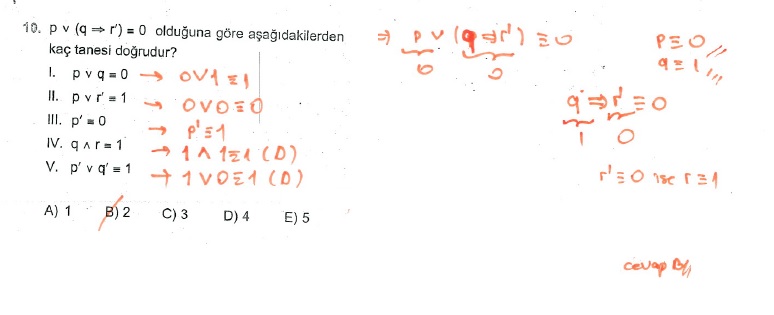 10. p ∨ (q ⇒ r') ≡ 0 olduğuna göre aşağıdakilerden
kaç tanesi doğrudur?
I. p ∨ q ≡ 0 → 0∨1 ≡ 1
II. p ∨ r' ≡ 1 → 0∨0 ≡ 0
III. p' ≡ 0 → p' ≡ 1
IV. q ∧ r ≡ 1 → 1 ∧ 1 ≡ 1 (D)
V. p' ∨ q' ≡ 1 → 1 ∨ 0 ≡ 1 (D)
A) 1 B) 2 C) 3 D) 4 E) 5
⇒ p ∨ (q ⇒ r') ≡ 0
0 0
p ≡ 0
q ≡ 1
q ⇒ r' ≡ 0
1 0
r' ≡ 0 ise r ≡ 1
cevap B